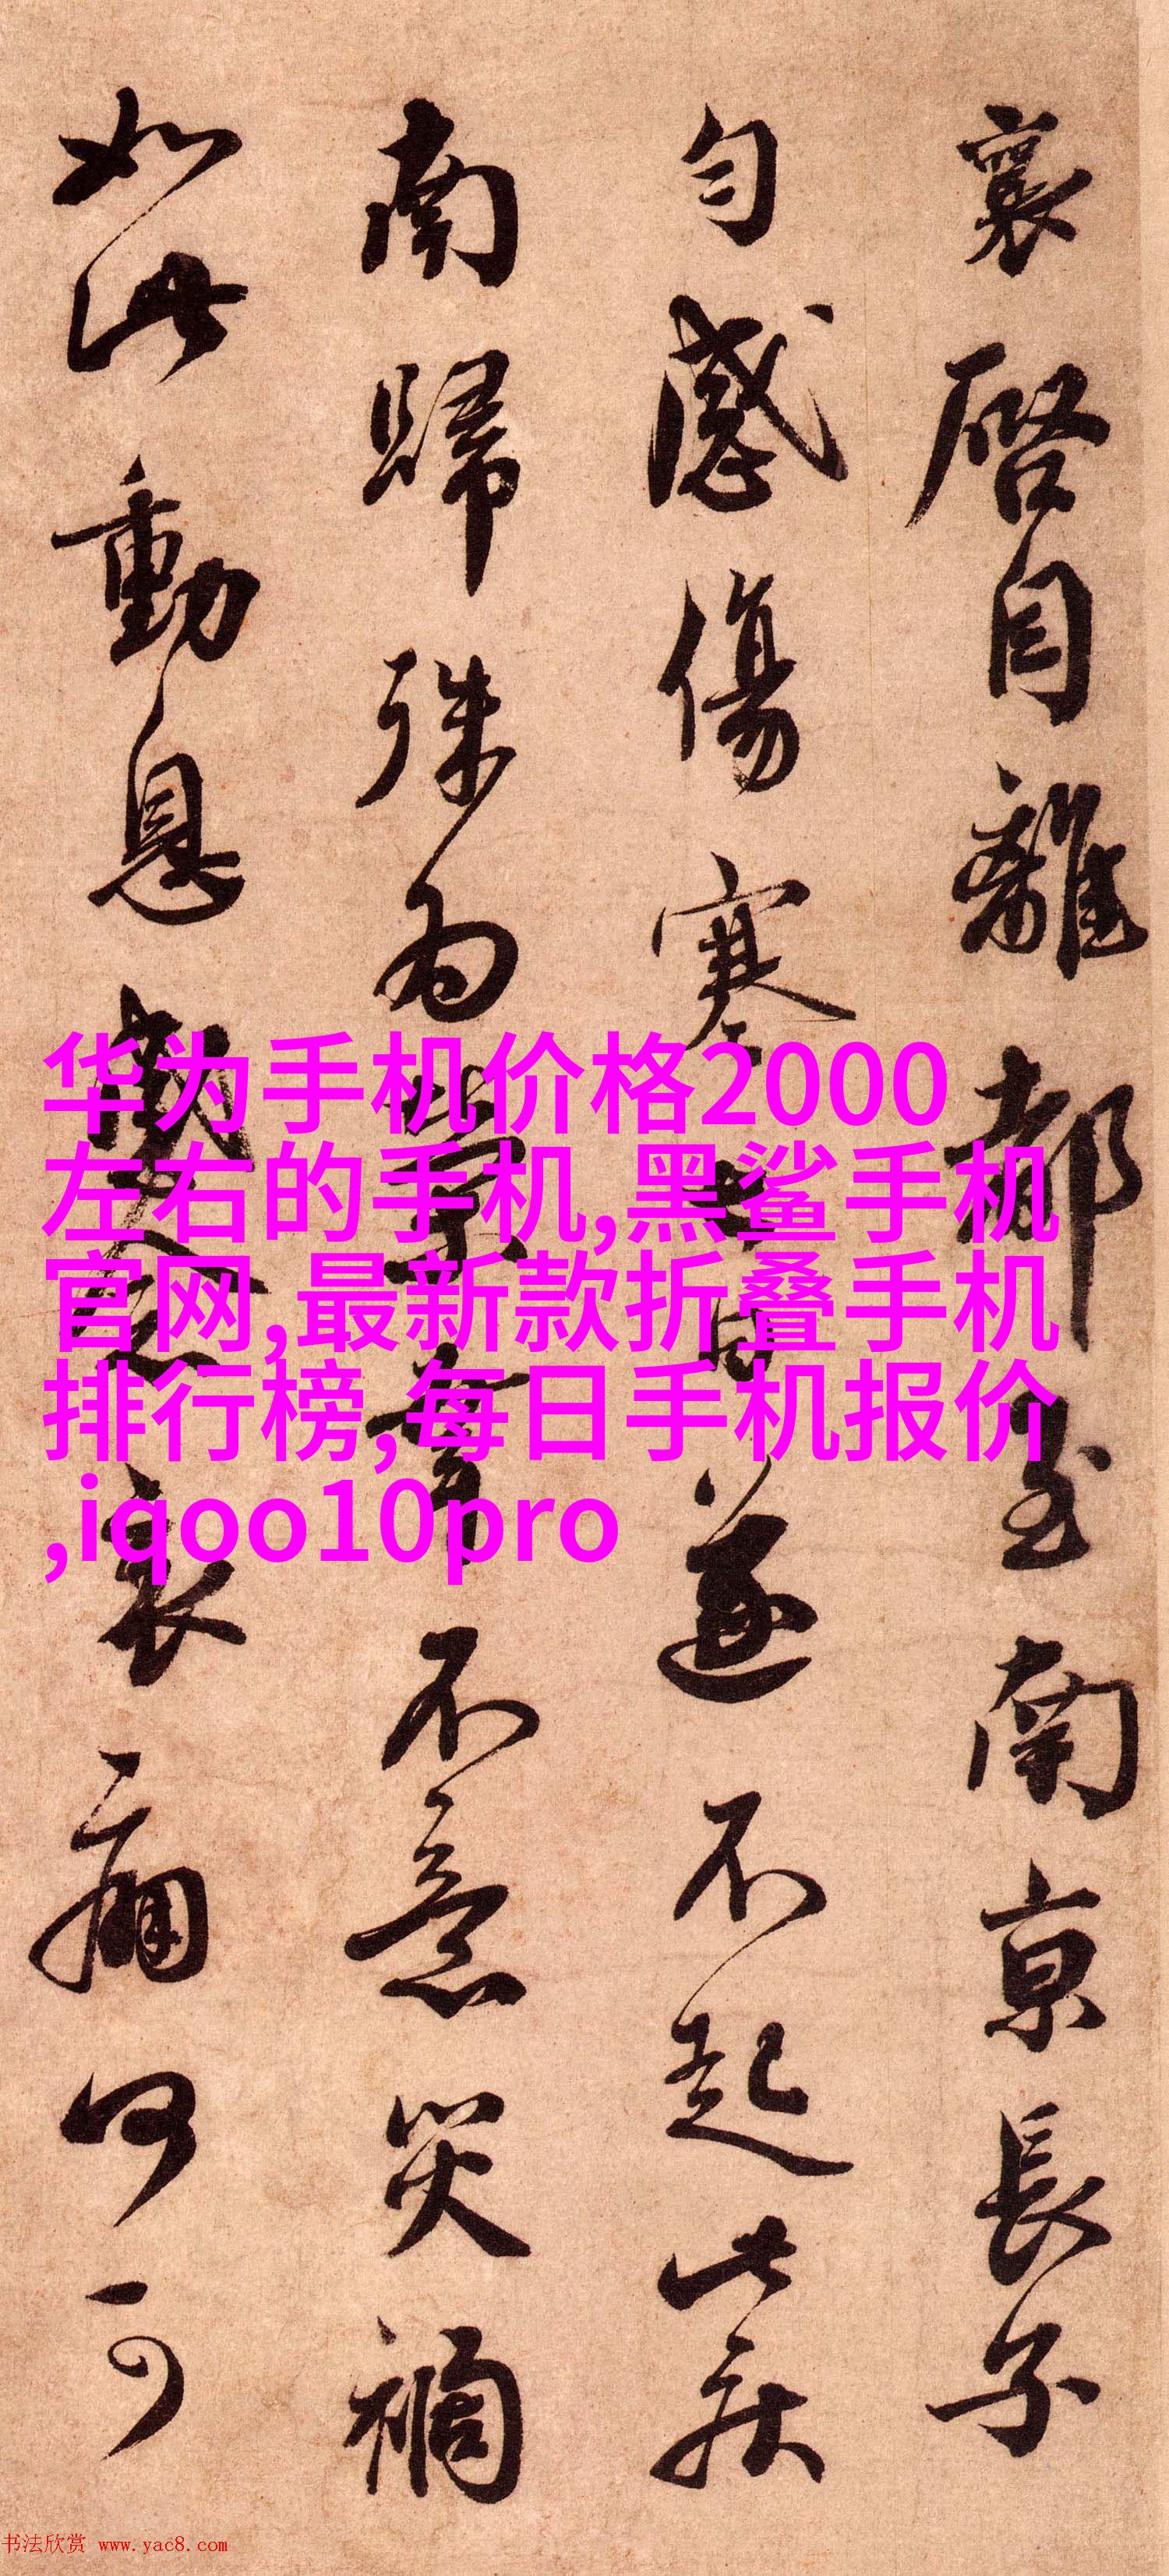 襄啓自離都至南京長子
勻感傷寒七日遂不起此疾
南歸殊爲榮幸不意災禍
如此動息感念哀痛何可
华为手机价格2000
左右的手机,黑鲨手机
官网,最新款折叠手机
排行榜,每日手机报价
,iqoo10pro
书法欣赏 www.yac8.com